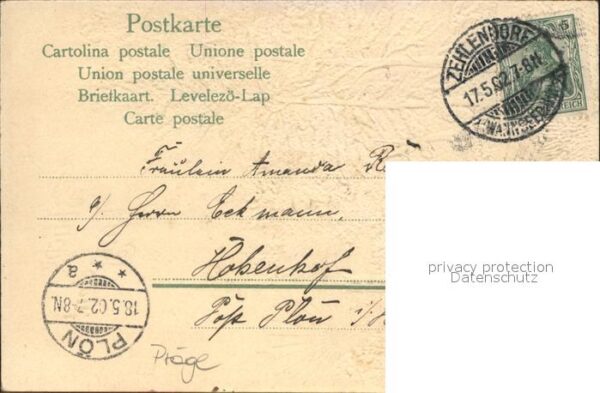 Postkarte
Cartolina postale Unione postale
Union postale universelle
Briefkaart. Levelező-Lap
Carte postale
5
REICH
ZEHLENDORF
17.5.02.7-8N.
(WANNSEEBAHN)
Fräulein Amanda
p/ Herrn Eckmann,
Hohenhof
Post Plön i/
PLÖN
18.5.02.7-8N.
* * a
Präge
privacy protection
Datenschutz